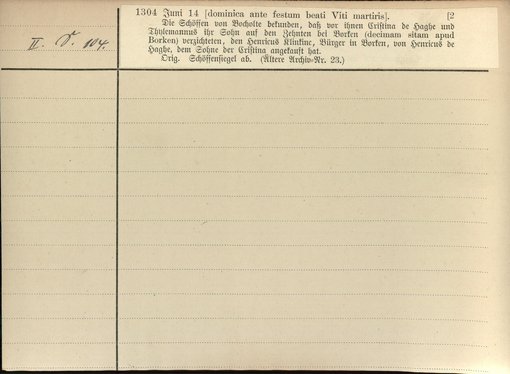 1304 Juni 14 [dominica ante festum beati Viti martiris]. [2
Die Schöffen von Bocholte bekunden, daß vor ihnen Cristina de Haghe und
Thylemannus ihr Sohn auf den Zehnten bei Borken (decimam sitam apud
Borken) verzichteten, den Henricus Klinkinc, Bürger in Borken, von Henricus de
Haghe, dem Sohne der Cristina angekauft hat.
Orig. Schöffensiegel ab. (Ältere Archiv-Nr. 23.)
II. 104.